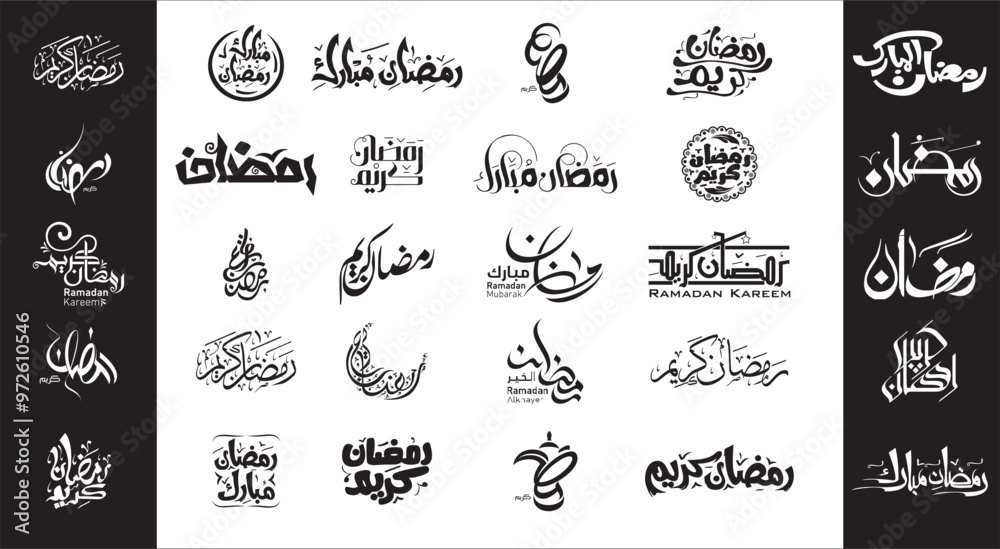 رمضان كريم
مبارك
رمضان
رمضان مبارك
كريم
رمضان
كريم
رمضان المبارك
رمضان
كريم
رمضان
رمضان
كريم
رمضان مبارك
رمضان
كريم
رمضان
رمضان كريم
Ramadan
Kareem
رمضان
رمضان كريم
رمضان
مبارك
Ramadan
Mubarak
رمضان كريم
RAMADAN KAREEM
رمضان
رمضان
كريم
رمضان كريم
رمضان
رمضان
الخير
Ramadan
Alkhayer
رمضان كريم
رمضان
كريم
رمضان
مبارك
رمضان
كريم
كريم
رمضان كريم
رمضان مبارك
Adobe Stock | #972610546